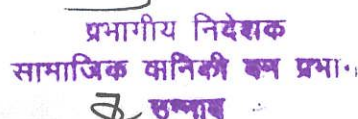 प्रभागीय निदेशक
सामाजिक वानिकी वन प्रभा.
उन्नाव